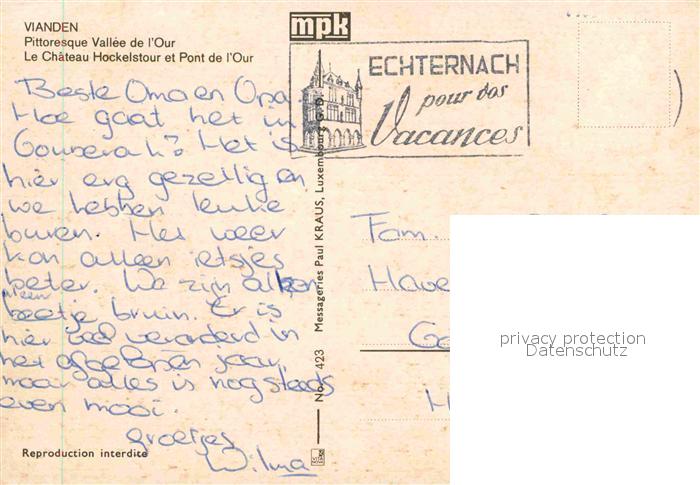 VIANDEN
Pittoresque Vallée de l'Our
Le Château Hockelstour et Pont de l'Our
mpk
ECHTERNACH
pour vos
Vacances
Beste Oma en Opa
Hoe gaat het in
Gouderak? Het is
hier erg gezellig en
we hebben leuke
buren. Het weer
kan alleen ietsjes
beter. We zijn al
een
beetje bruin. Er is
hier veel veranderd in
het afgelopen jaar,
maar alles is nog steeds
even mooi.
Groetjes
Wilma
Fam.
Have
Go
H
No. 423 Messageries Paul KRAUS, Luxembourg G.D.
Reproduction interdite
privacy protection
Datenschutz